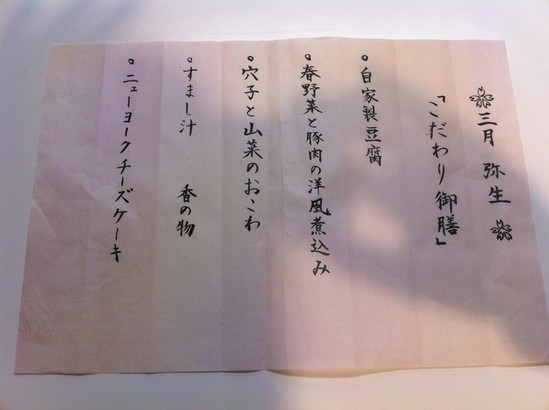 三月 弥生
「こだわり御膳」
○自家製豆腐
○春野菜と豚肉の洋風煮込み
○穴子と山菜のおこわ
○すまし汁 香の物
○ニューヨークチーズケーキ